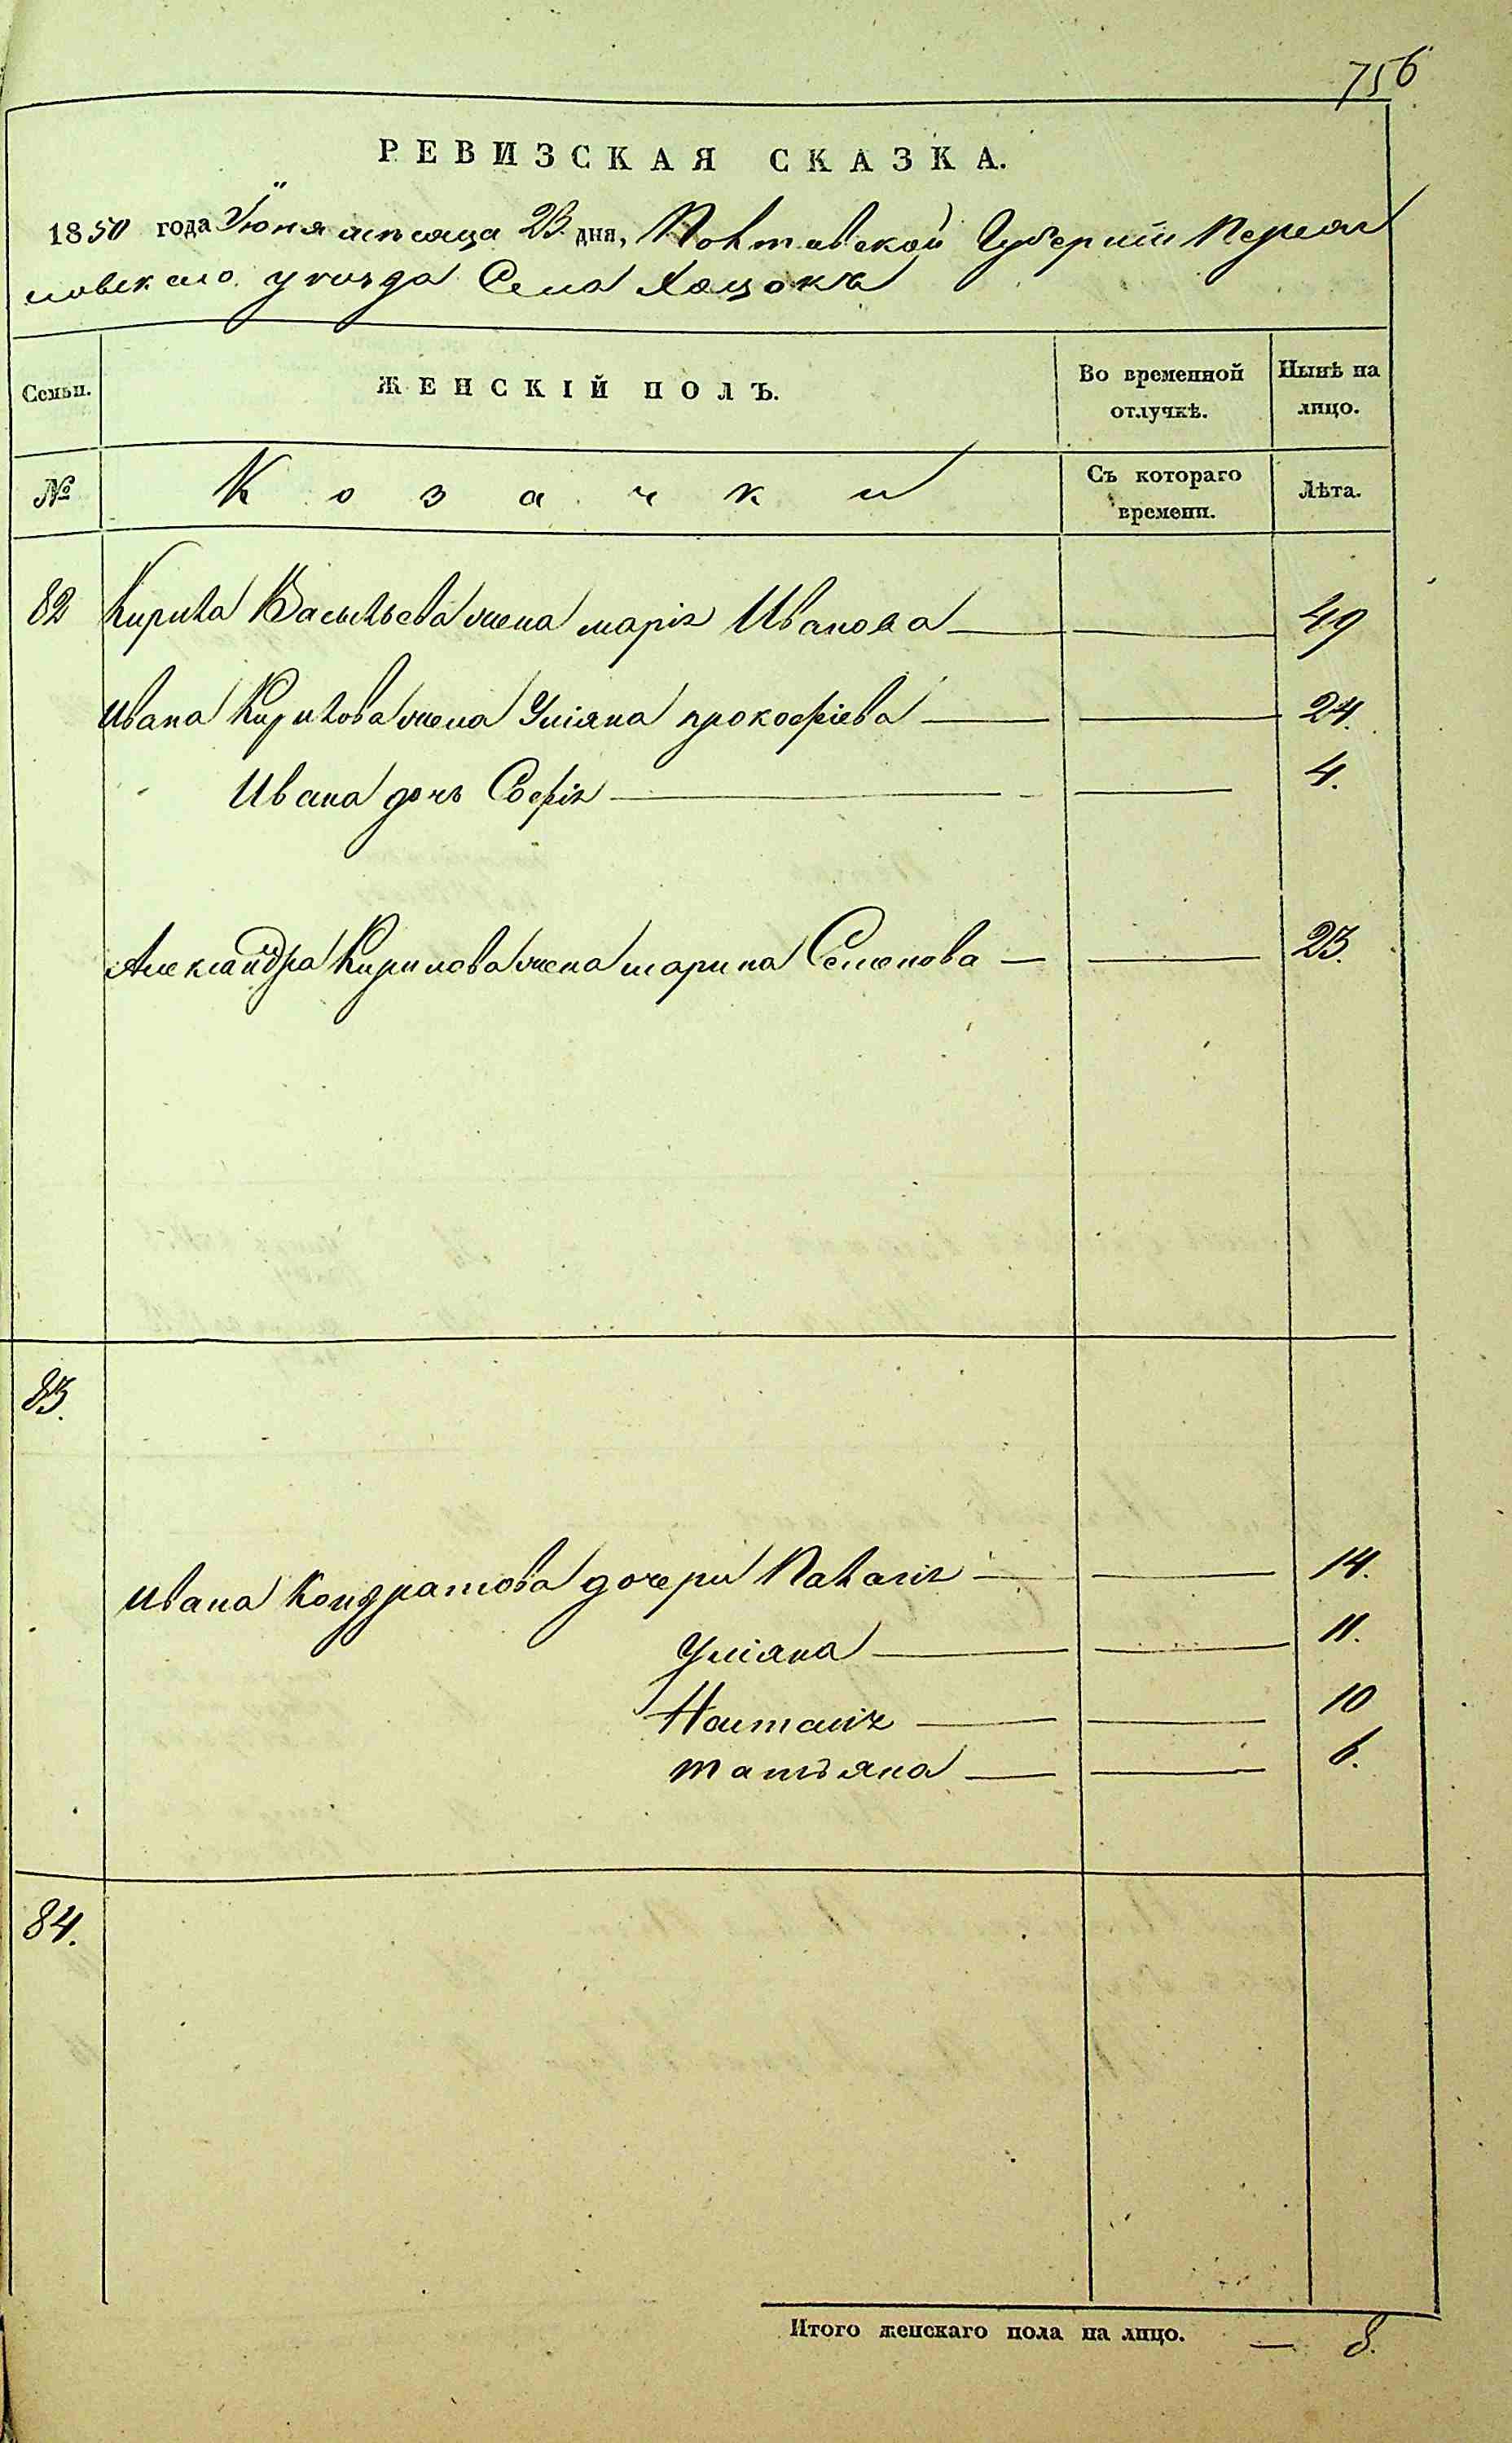 756
РЕВИЗСКАЯ СКАЗКА.
1850 года Іюня мѣсяца 23 дня, Полтавской Губерніи Переяс
ловскаго уѣзда Села Хоцокъ
Семьи. ЖЕНСКІЙ ПОЛЪ. Во временной отлучкѣ. Нынѣ на лицо.
№ Козачки Съ котораго времени. Лѣта.
82 Кирила Васильева жена марія Иванова 49
Ивана Кирилова жена Уліяна прокофіева 24.
Ивана дочь Софія 4.
Александра Кирилова жена марина Семенова 23.
83.
Ивана Кондратова дочери Палагія 14.
Уліяна 11.
Наталія 10
татьяна 6.
84.
Итого женскаго пола на лицо. — 8.